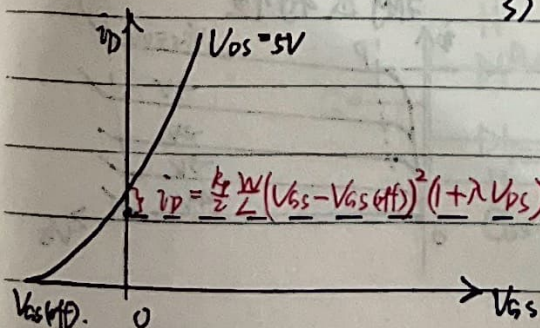 5)
i_D
V_DS = 5V
i_D = k_p/2 W/L (V_GS - V_GS(off))^2 (1 + λ V_DS)
V_GS(off).
0
V_GS